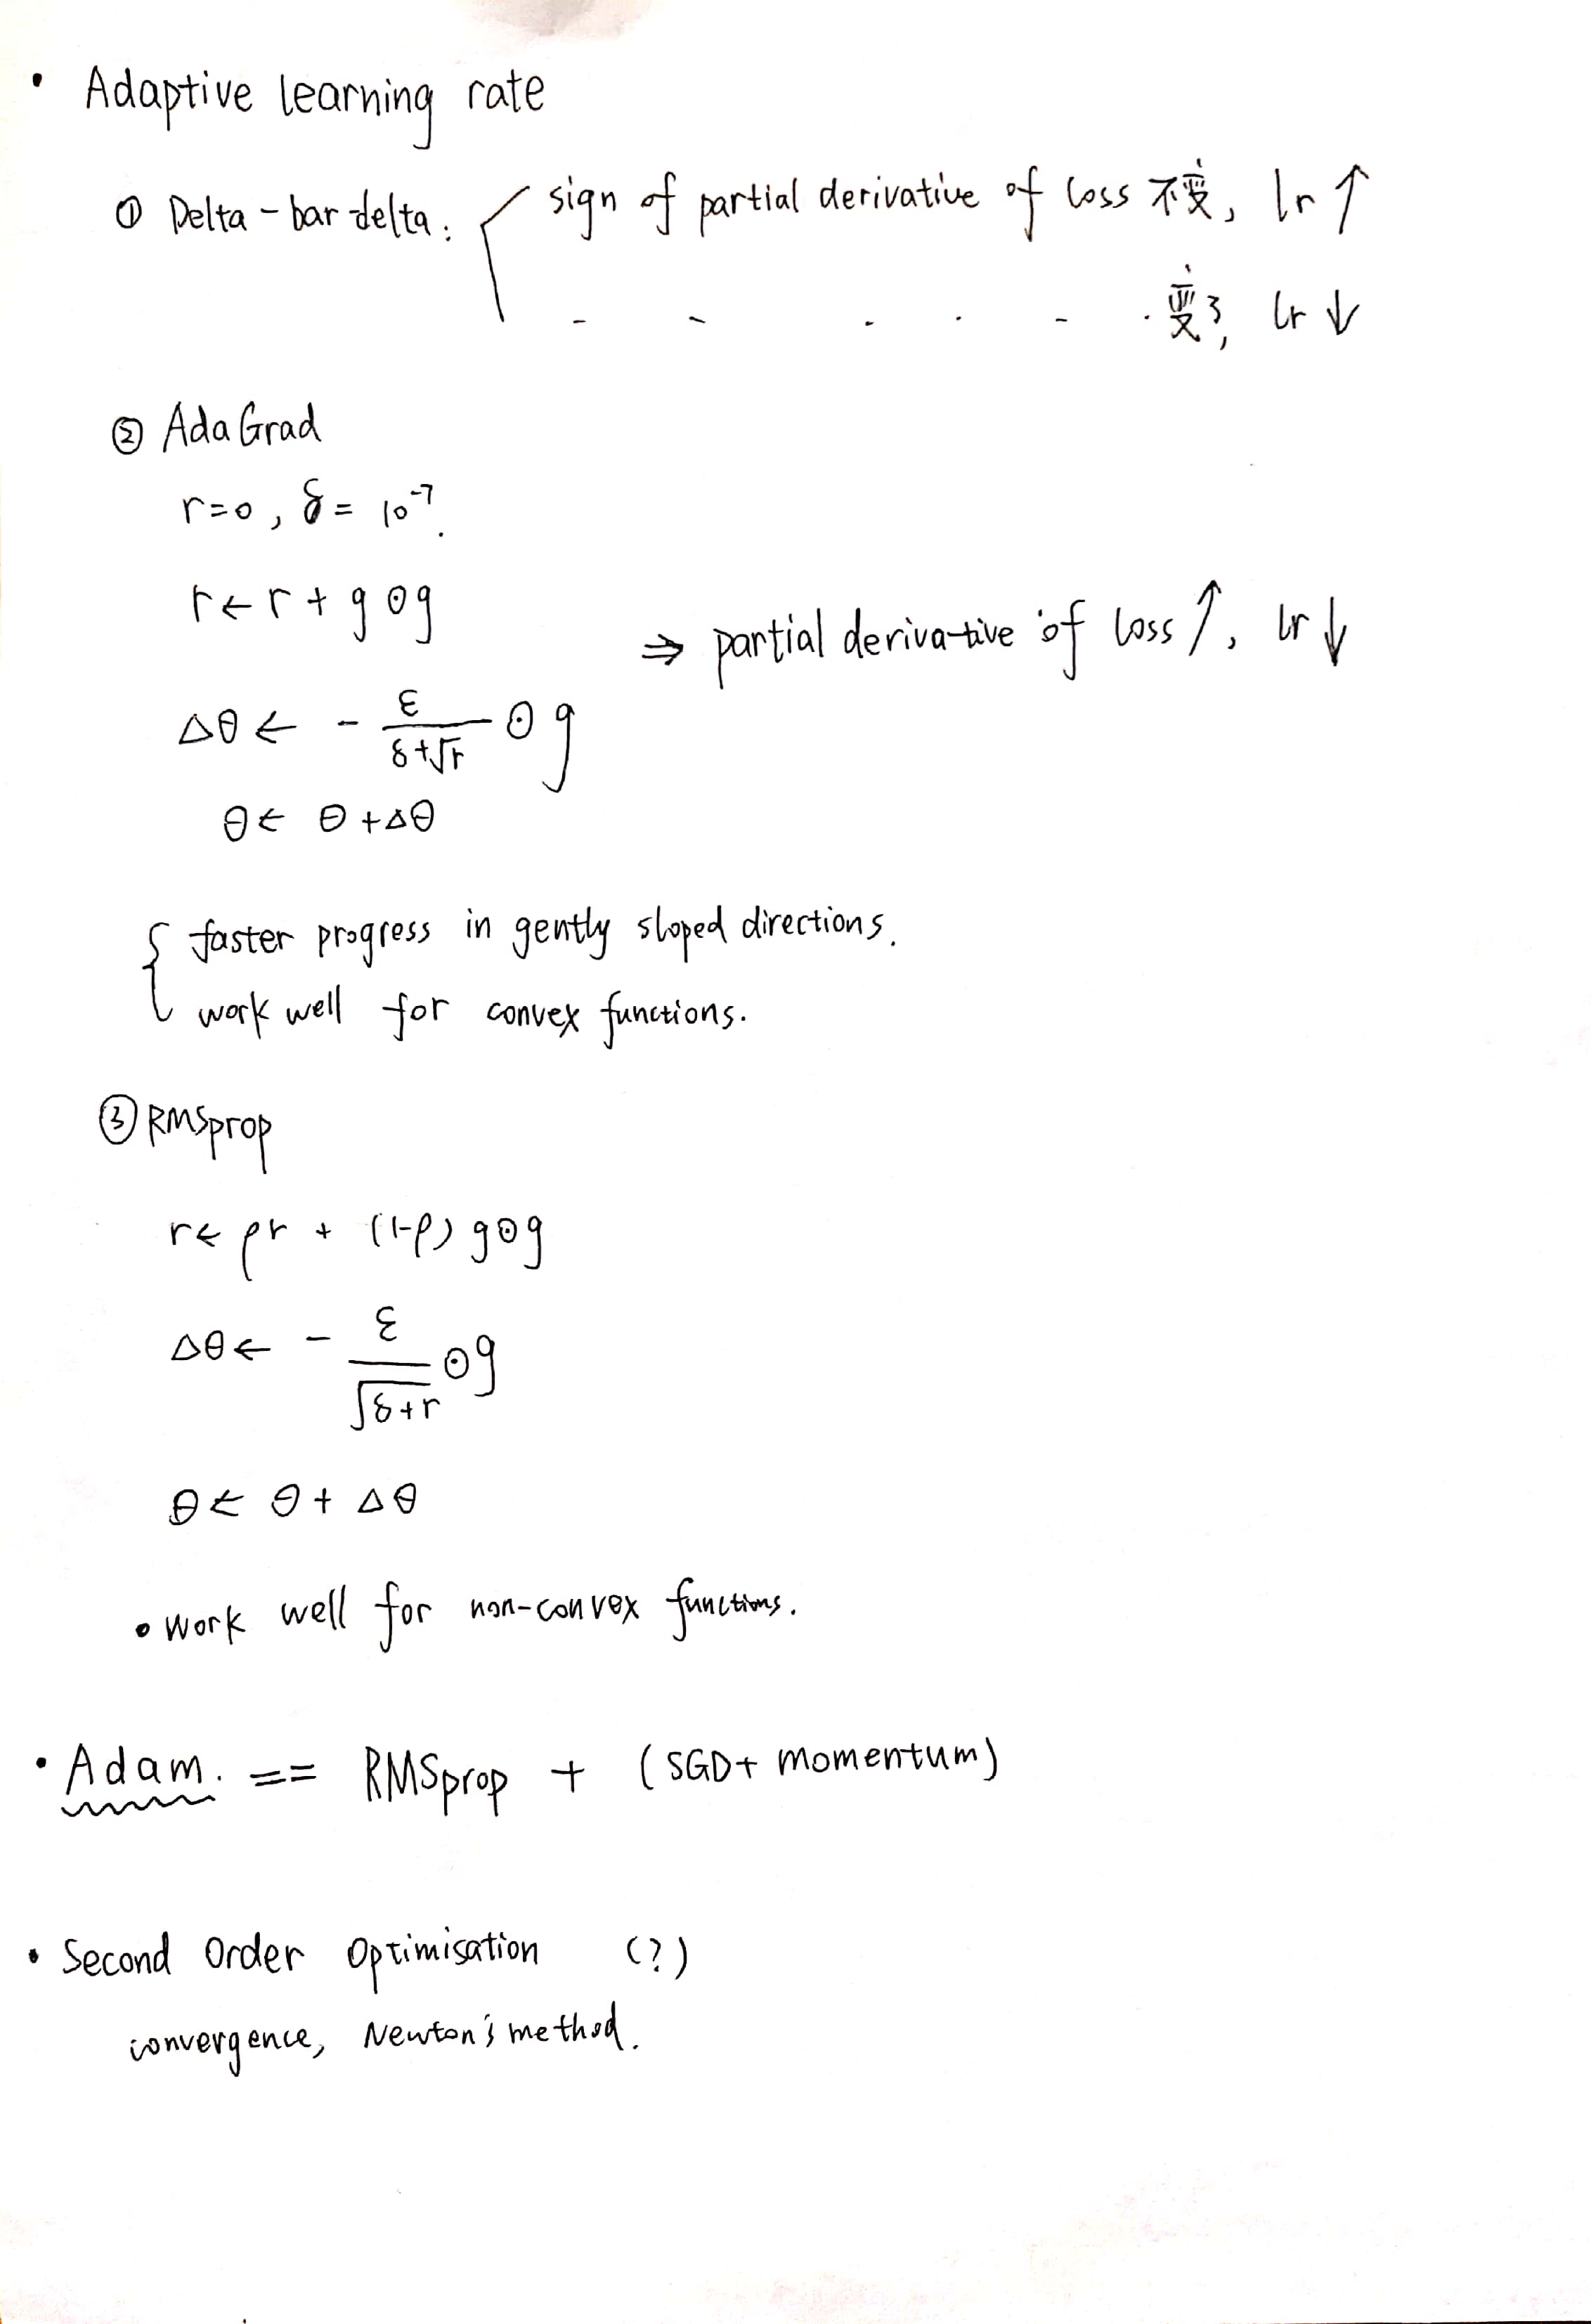 • Adaptive learning rate
① Delta-bar-delta: sign of partial derivative of loss 不变, lr ↑
- - . . - . 变了, lr ↓
② AdaGrad
r=0, δ= 10⁻⁷.
r ← r + g ⊙ g
⇒ partial derivative of loss ↑, lr ↓
Δθ ← - ε/(δ+√r) ⊙ g
θ ← θ + Δθ
{ faster progress in gently sloped directions.
work well for convex functions.
③ RMSprop
r ← ρr + (1-ρ) g⊙g
Δθ ← - ε/√(δ+r) ⊙ g
θ ← θ + Δθ
• Work well for non-convex functions.
• Adam. == RMSprop + (SGD+ momentum)
• Second Order Optimisation (?)
convergence, Newton's method.